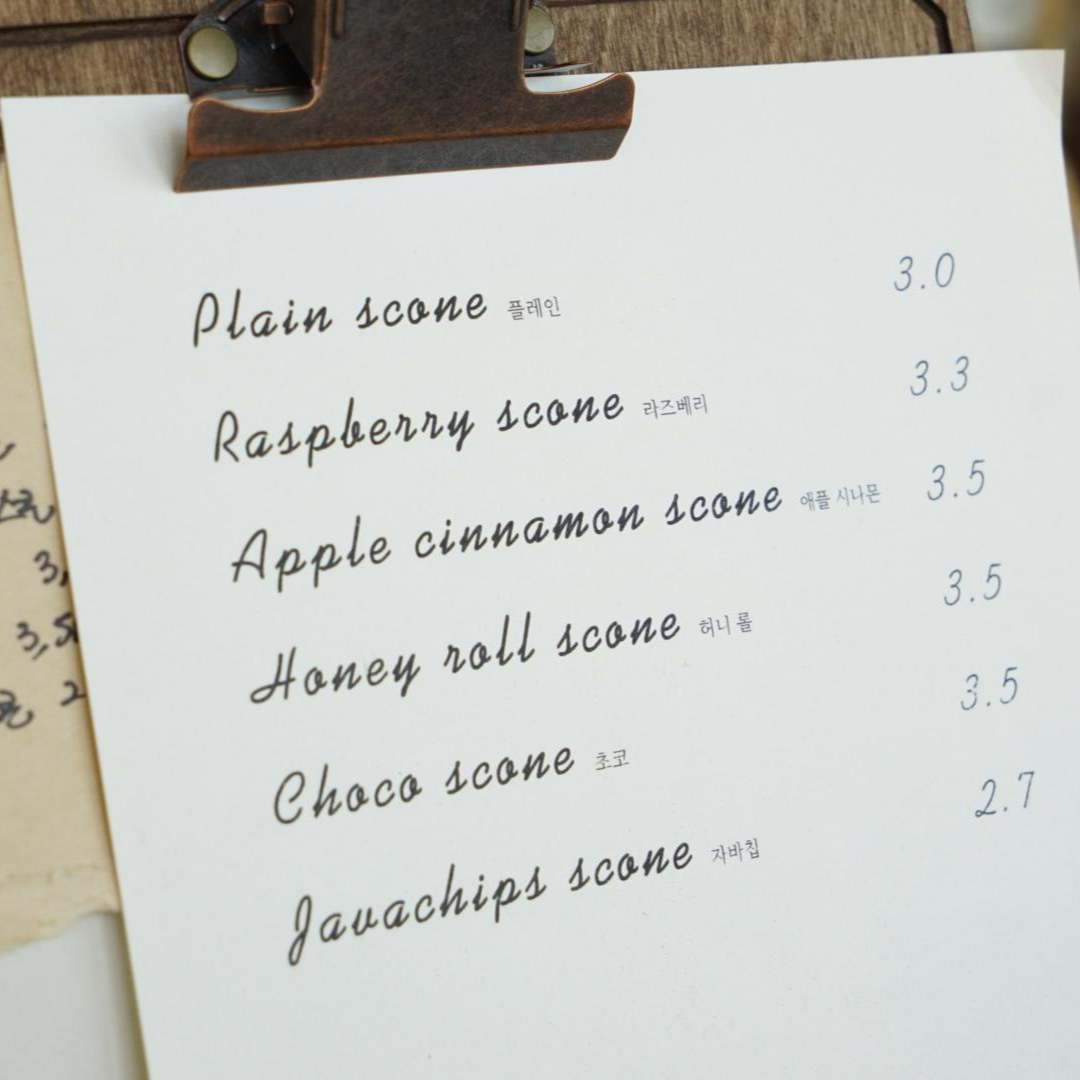 Plain scone 플레인 3.0
Raspberry scone 라즈베리 3.3
Apple cinnamon scone 애플 시나몬 3.5
Honey roll scone 허니 롤 3.5
Choco scone 초코 3.5
Javachips scone 자바칩 2.7
3,
3,5
2